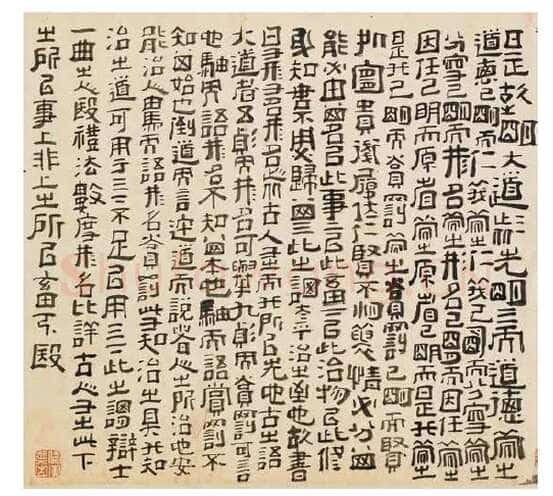 是故明大道者先明天而道德次之
道德已明而仁義次之仁義已明而分守次之
分守已明而形名次之形名已明而因任次之
因任已明而原省次之原省已明而是非次之
是非已明而賞罰次之賞罰已明而
知處宜貴賤履位仁賢不肖襲情必分其
能必由其名以此事上以此畜下以此治物以此修
身知謀不用必歸其天此之謂太平治之至也故書
曰有形有名形名者古人有之而非所以先也古之語
大道者五變而形名可舉九變而賞罰可言
也驟而語形名不知其本也驟而語賞罰不
知其始也倒道而言迕道而說者人之所治也安
能治人驟而語形名賞罰此有知治之具非知
治之道可用于天下不足以用天下此之謂辯士
一曲之人也禮法數度形名比詳古人有之此下
之所以事上非上之所以畜下也